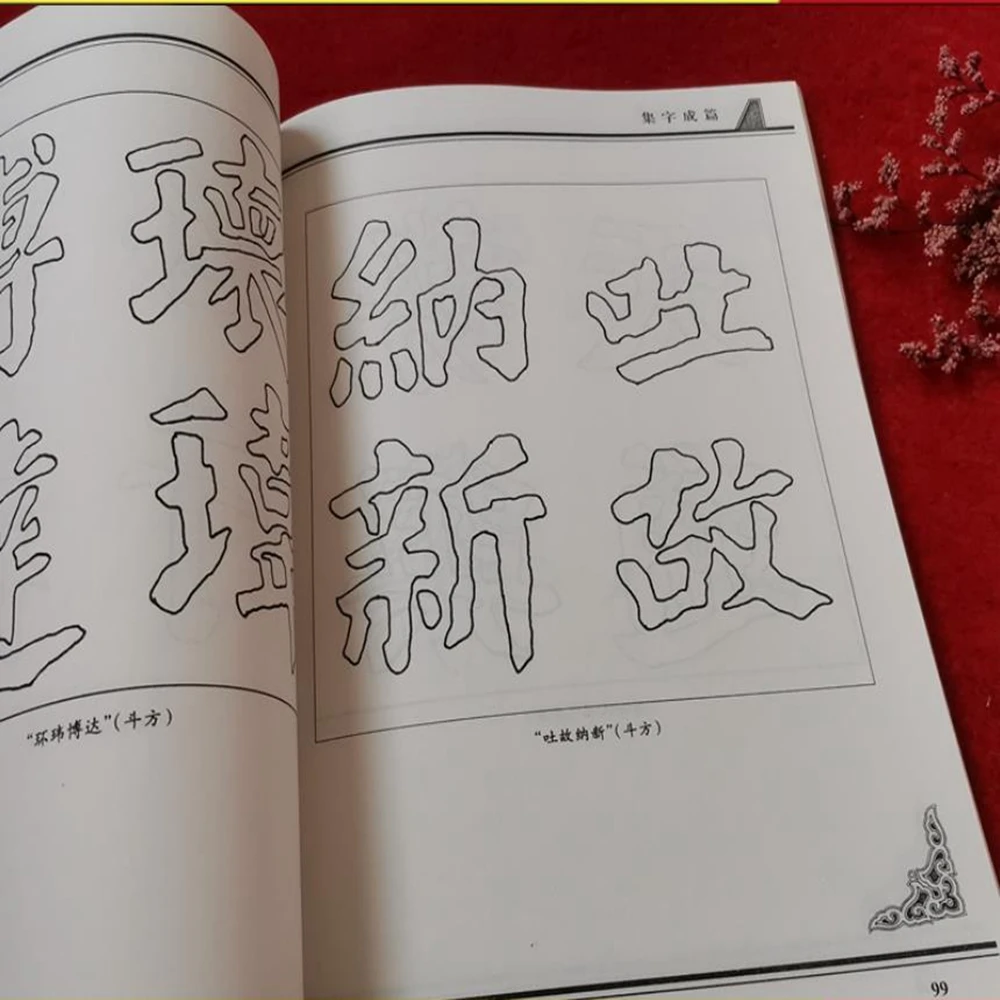 環瑋
博達
“环玮博达”(斗方)
集字成篇
吐故
納新
“吐故纳新”(斗方)
99